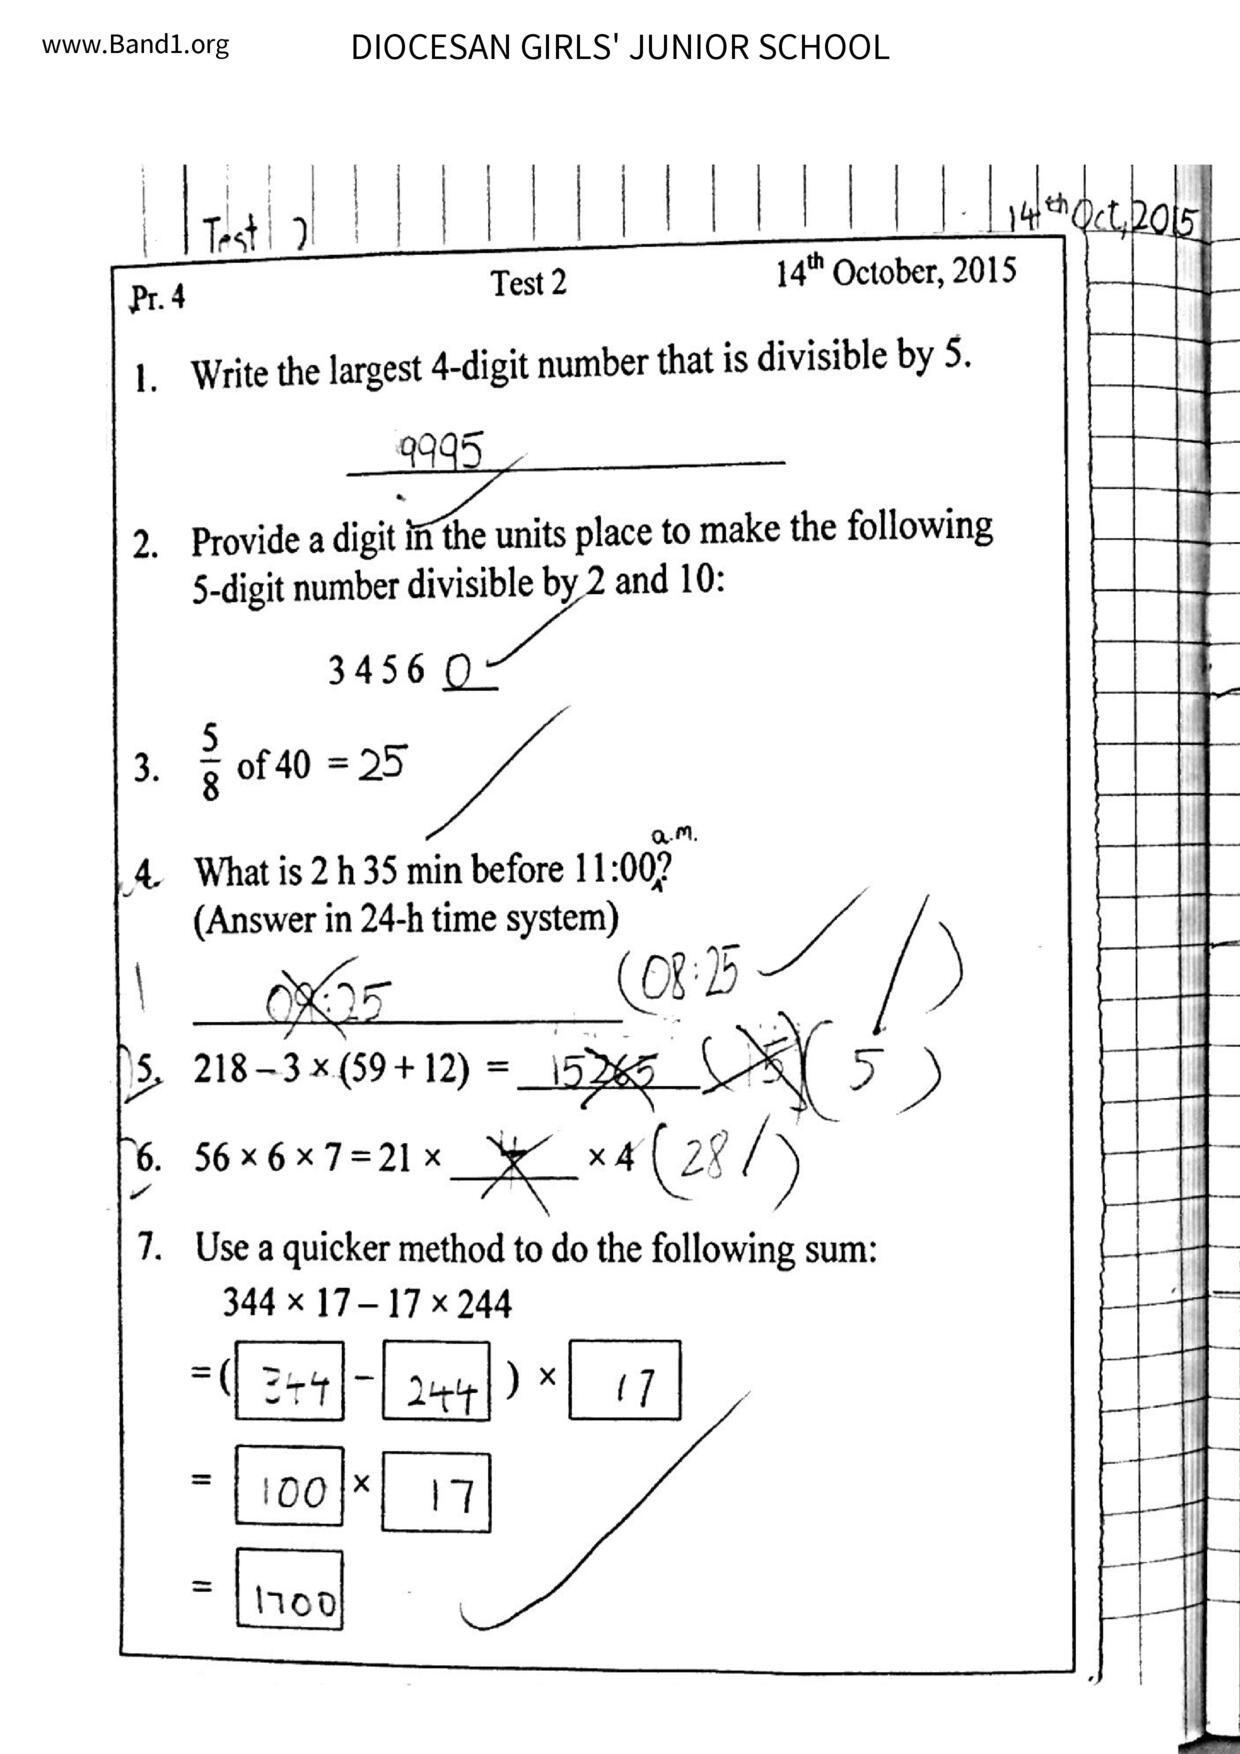 www.Band1.org DIOCESAN GIRLS' JUNIOR SCHOOL
Test 2 14th Oct, 2015
Pr. 4 Test 2 14th October, 2015
1. Write the largest 4-digit number that is divisible by 5.
9995
2. Provide a digit in the units place to make the following
5-digit number divisible by 2 and 10:
3 4 5 6 0
3. 5/8 of 40 = 25
a.m.
4. What is 2 h 35 min before 11:00?
(Answer in 24-h time system)
09:25 (08:25 )
5. 218 – 3 × (59 + 12) = 15265 (15) ( 5 )
6. 56 × 6 × 7 = 21 × 4 × 4 (28)
7. Use a quicker method to do the following sum:
344 × 17 – 17 × 244
= ( 344 – 244 ) × 17
= 100 × 17
= 1700